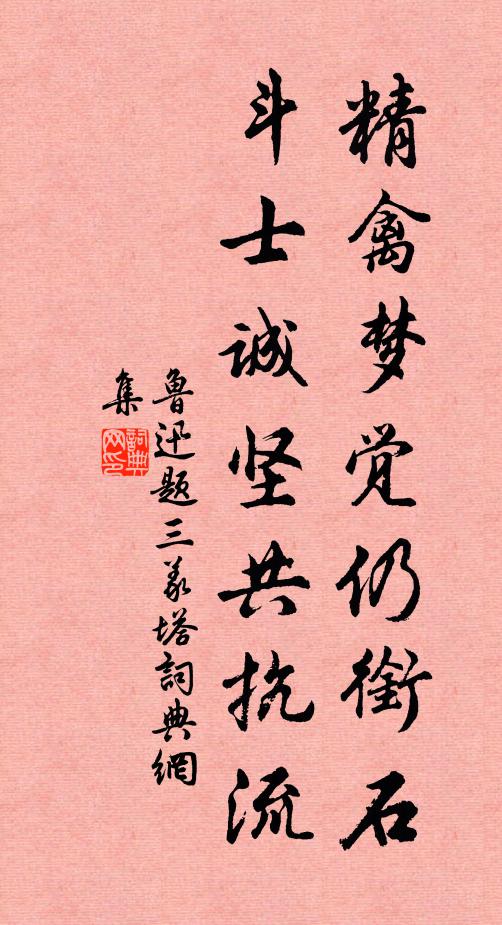 精禽梦觉仍衔石
斗士诚坚共抗流
鲁迅题三义塔詞典網
集
詞典
网印